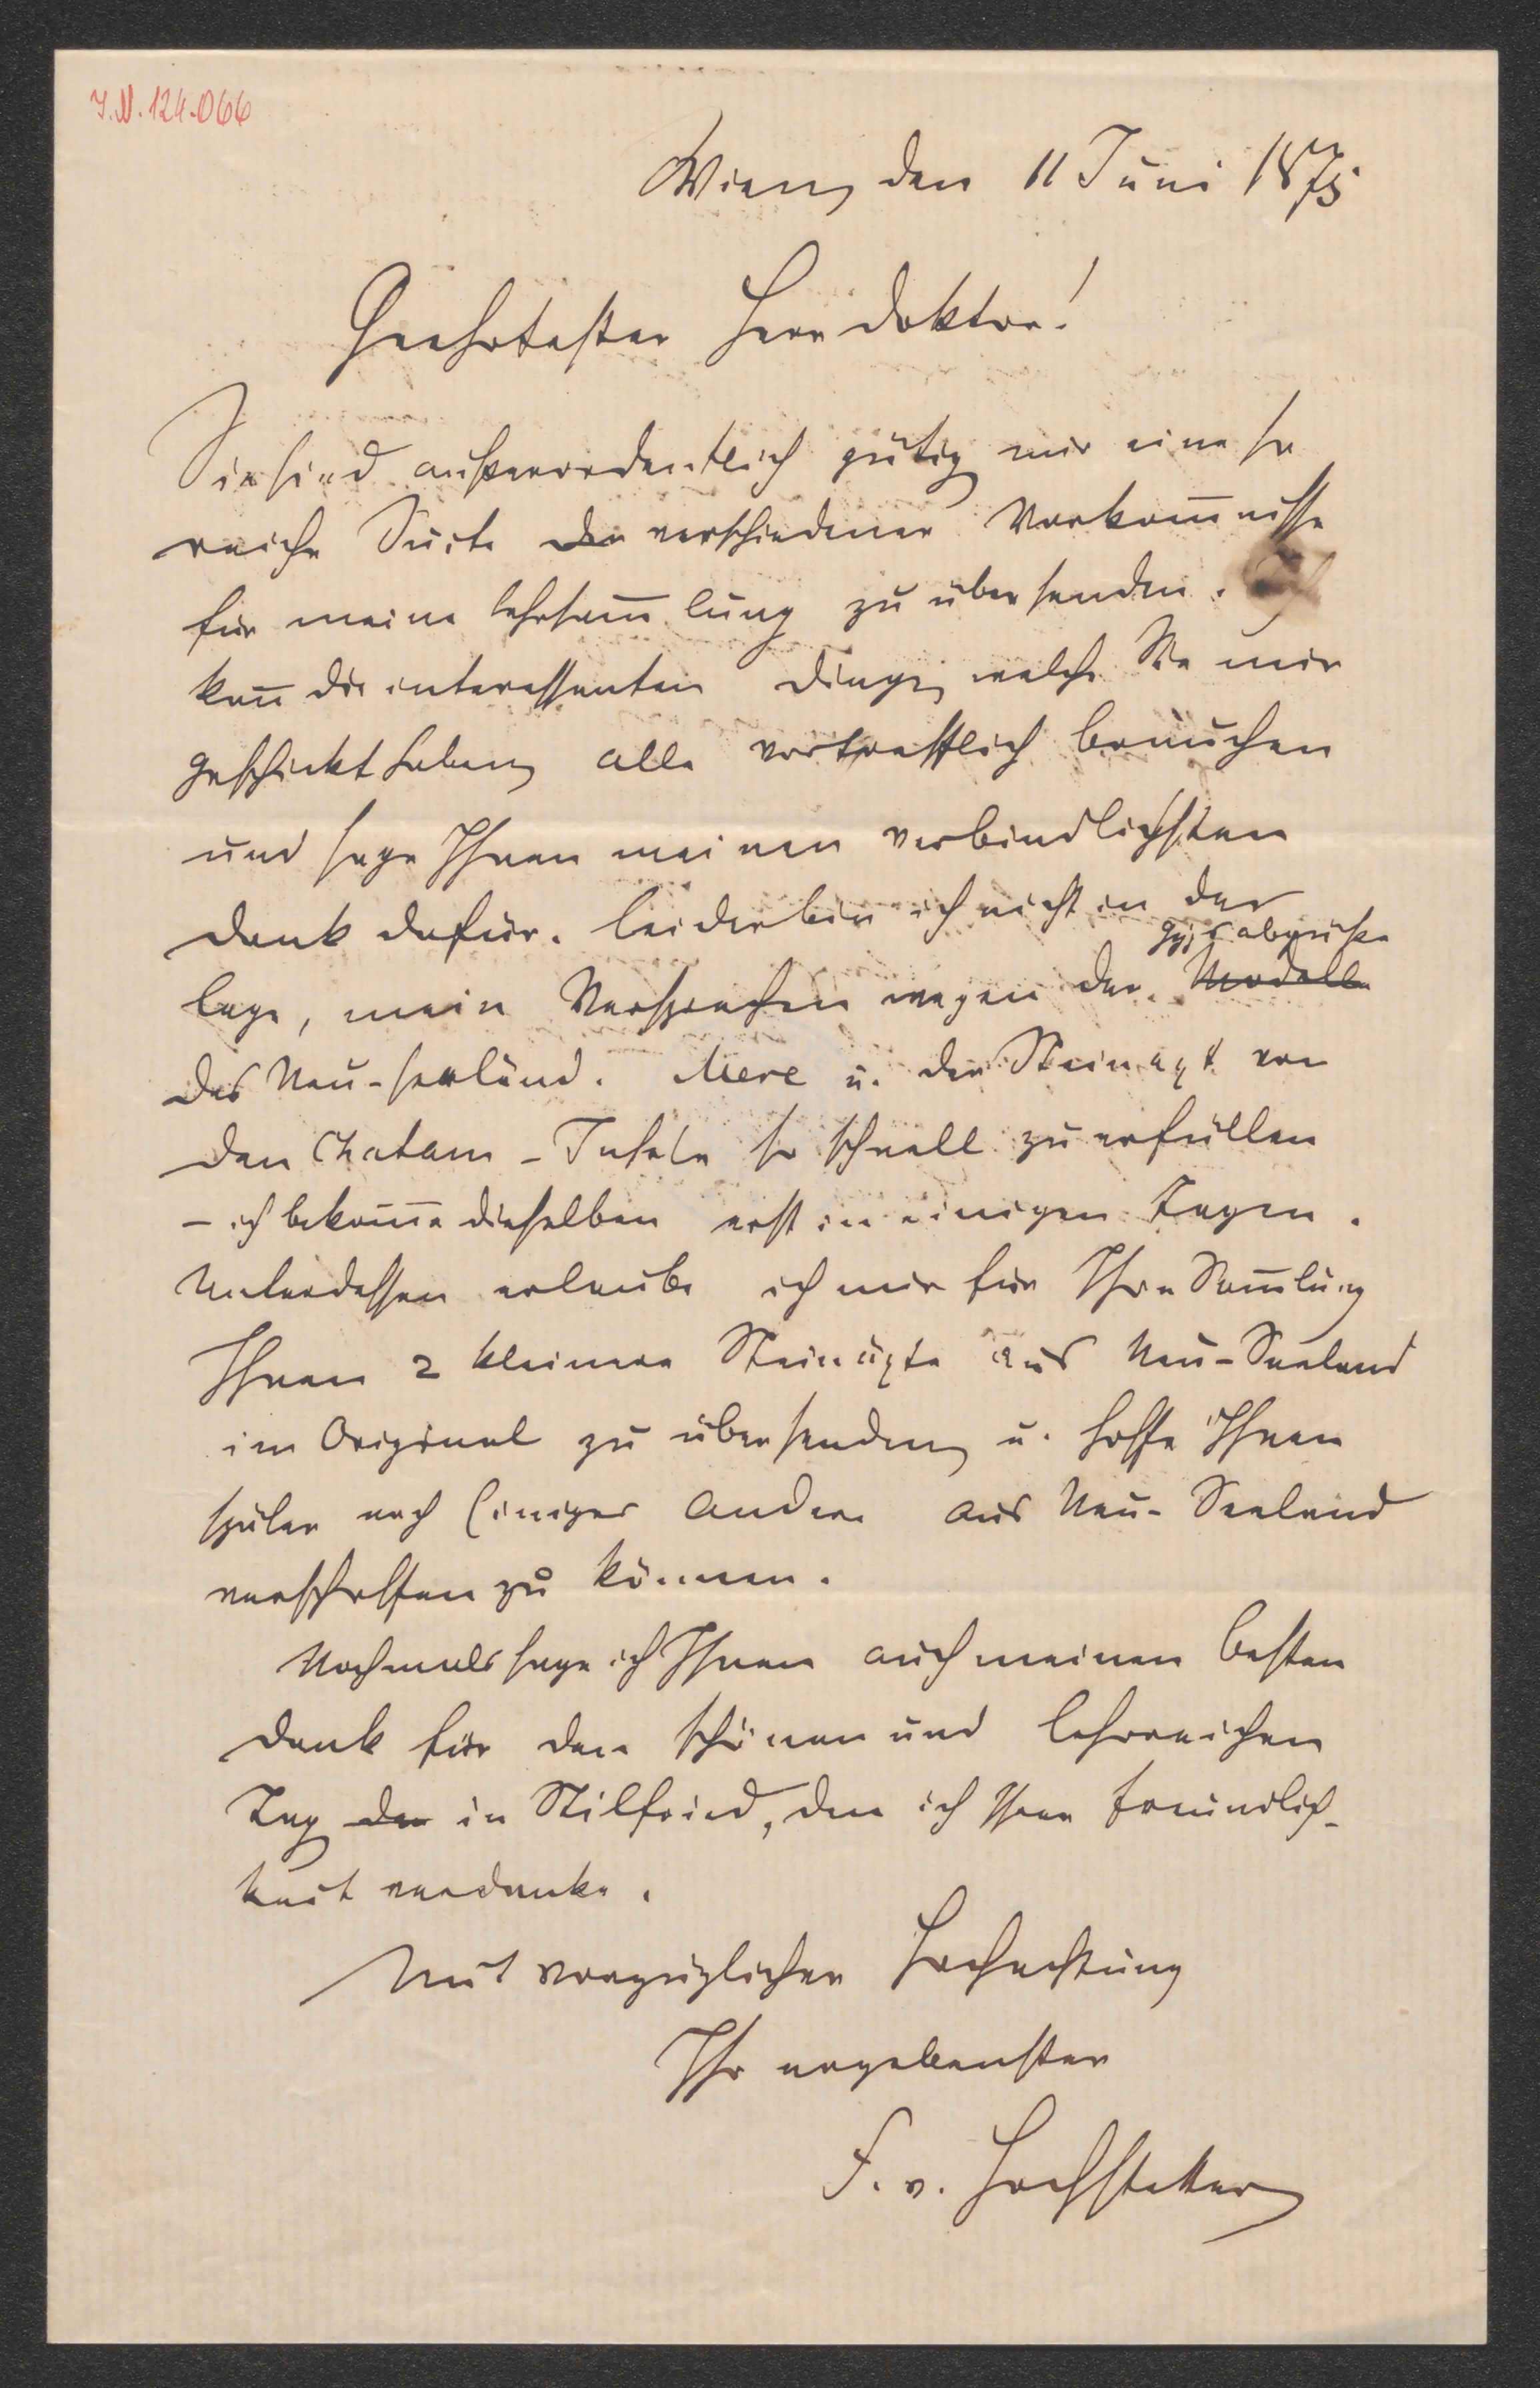 I.N. 124.066
Wien, den 11 Juni 1875
Geehrtester Herr Doktor!
Sie sind außerordentlich gütig mir eine so
reiche Suite der verschiedener Vorkom̄nisse
für meine Lehrsam̄lung zu übersenden. Ich
kan̄ die interessanten Dinge, welche Sie mir
geschickt haben, alle vortrefflich brauchen
und sage Ihnen meinen verbindlichsten
Dank dafür. Leider bin ich nicht in der
Gypsabgüsse
Lage, mein Versprechen wegen der Modelle
des Neu-seeländ. Mere u. der Steinaxt von
den Chatam-Inseln so schnell zu erfüllen
– ich bekom̄e dieselben erst in einigen Tagen.
Unterdessen erlaube ich mir für Ihre Sam̄lung
Ihnen 2 kleinere Steinäxte aus Neu-Seeland
im Original zu übersenden, u. hoffe Ihnen
später noch Einiges Andere aus Neu-Seeland
verschaffen zu können.
Nochmals sage ich Ihnen auch meinen besten
Dank für den schönen und lehrreichen
Tag der in Stilfried, den ich Ihrer Freundlich-
keit verdanke.
Mit vorzüglicher Hochachtung
Ihr ergebenster
F. v. Hochstetter